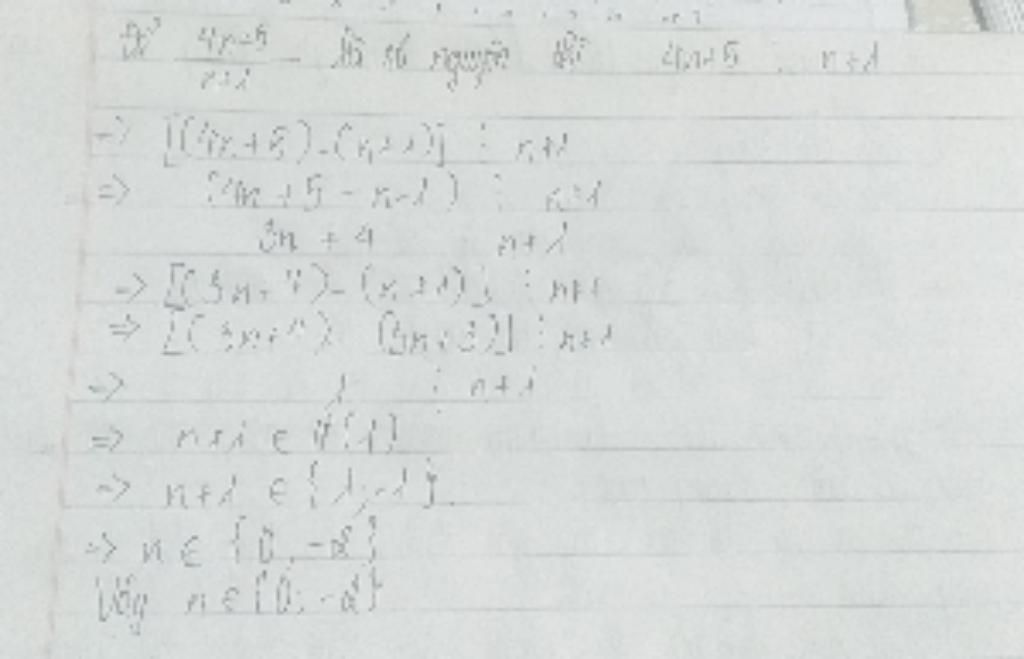 Để \frac{4n+5}{n+1} là số nguyên thì 4n+5 ⋮ n+1
=> [(4n+5)-(n+1)] ⋮ n+1
=> (4n+5-n-1) ⋮ n+1
3n + 4 n+1
=> [(3n+4)-(n+1)] ⋮ n+1
=> [(3n+4) (3n+3)] ⋮ n+1
=> 1 ⋮ n+1
=> n+1 ∈ Ư(1)
=> n+1 ∈ {1;-1}
=> n ∈ {0;-2}
Vậy n ∈ {0;-2}